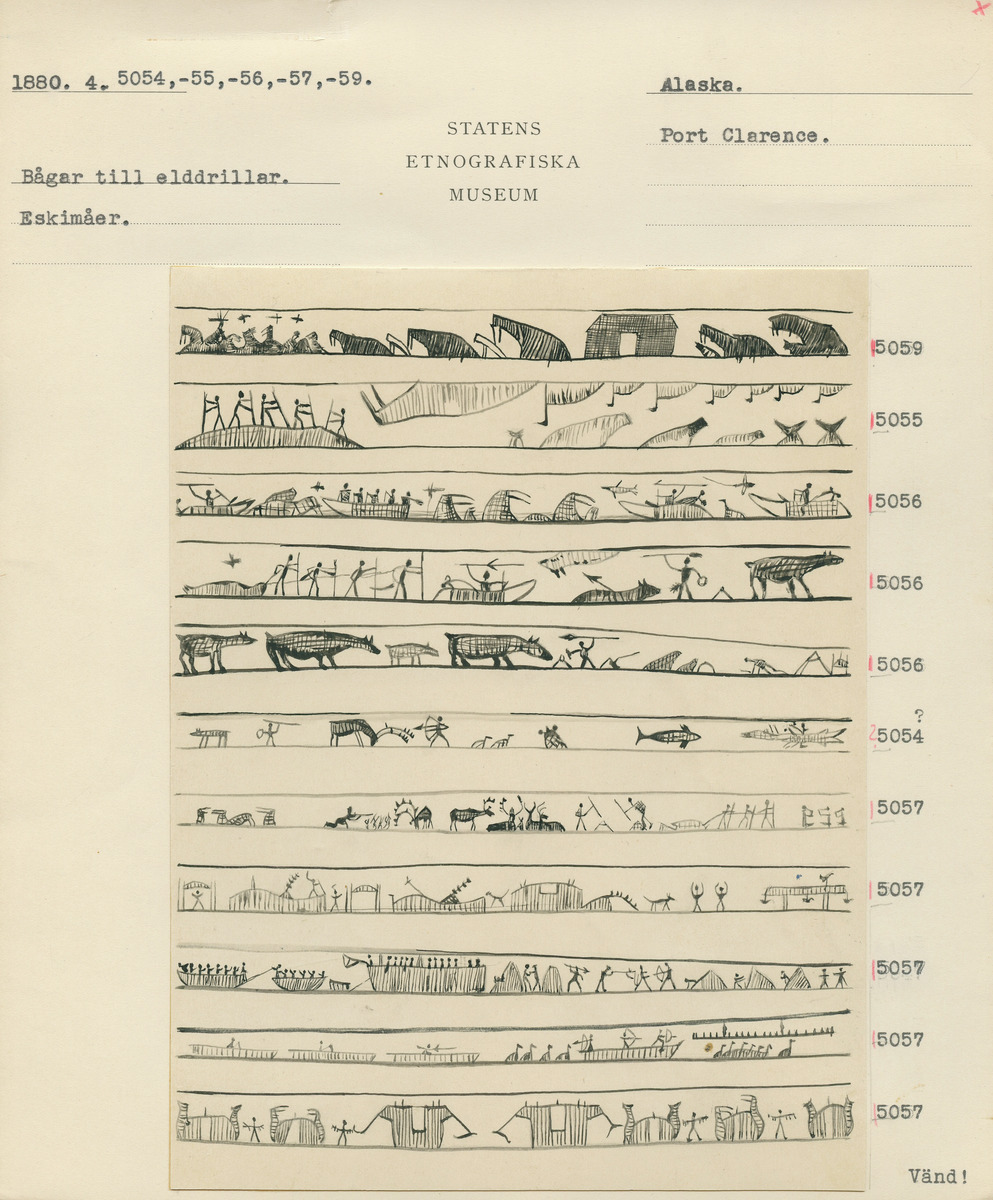 1880. 4. 5054,-55,-56,-57,-59.
Alaska.
STATENS
ETNOGRAFISKA
MUSEUM
Port Clarence.
Bågar till elddrillar.
Eskimåer.
5059
5055
5056
5056
5056
?
5054
5057
5057
5057
5057
5057
Vänd!